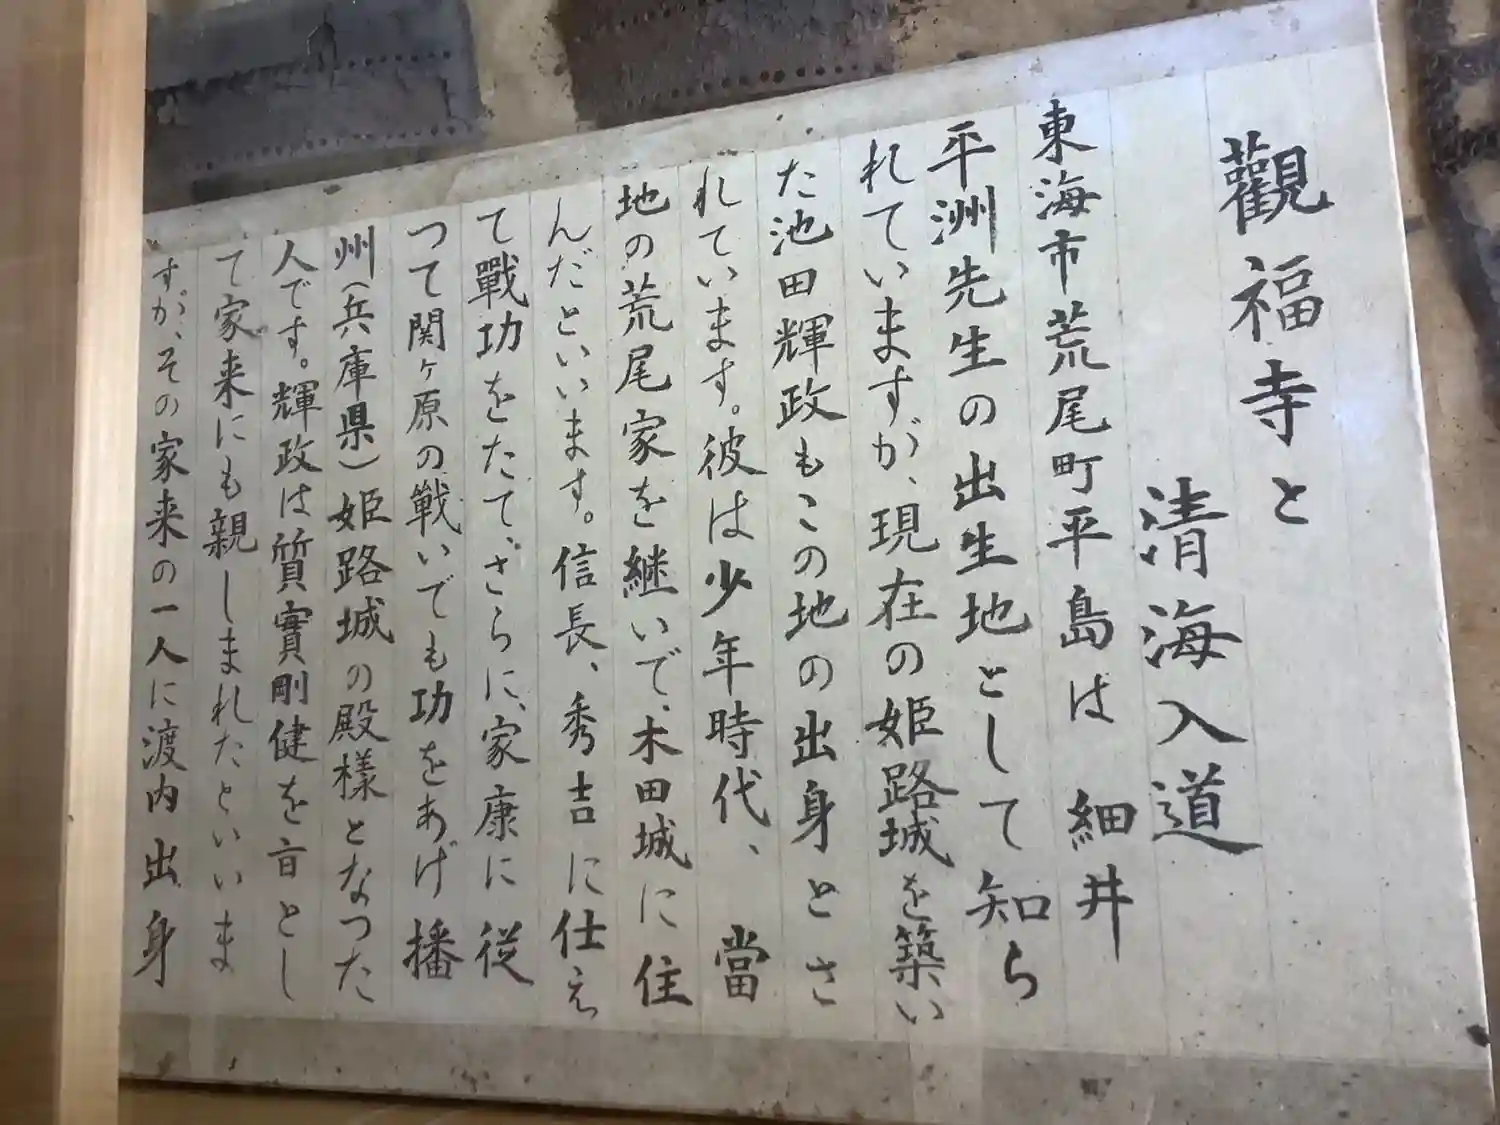 觀福寺と
清海入道
東海市荒尾町平島は細井
平洲先生の出生地として知ら
れていますが、現在の姫路城を築い
た池田輝政もこの地の出身とさ
れています。彼は少年時代、當
地の荒尾家を継いで、木田城に住
んだといいます。信長、秀吉に仕え
て戰功をたて、さらに、家康に従
つて関ヶ原の戦いでも功をあげ播
州（兵庫県）姫路城の殿様となつた
人です。輝政は質實剛健を旨とし
て家来にも親しまれたといいま
すが、その家来の一人に渡内出身